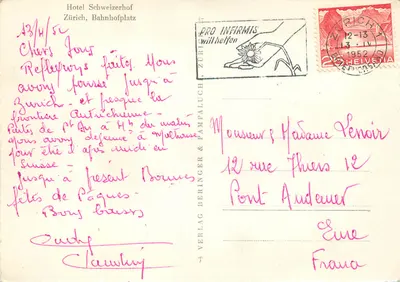 Hotel Schweizerhof
Zürich, Bahnhofplatz
13/4/52
Chers Tous
Reflexions faites Nous
avons poussé jusqu'à
Zurich - et presque la
frontière Autrichienne -
Partis de St 4 H du matin
nous avons déjeuné à
pour être l' après midi en
Suisse -
jusqu'à présent Bonnes
fêtes de Pâques -
Bons baisers
VERLAG DERINGER & PAMPALUCHI, ZÜRICH
PRO INFIRMIS
will helfen
ZÜRICH 1
12-13
13. IV.
1952
20
HELVETIA
Monsieur & Madame Lenoir
12 rue Thiers 12
Pont Audemer
Eure
France